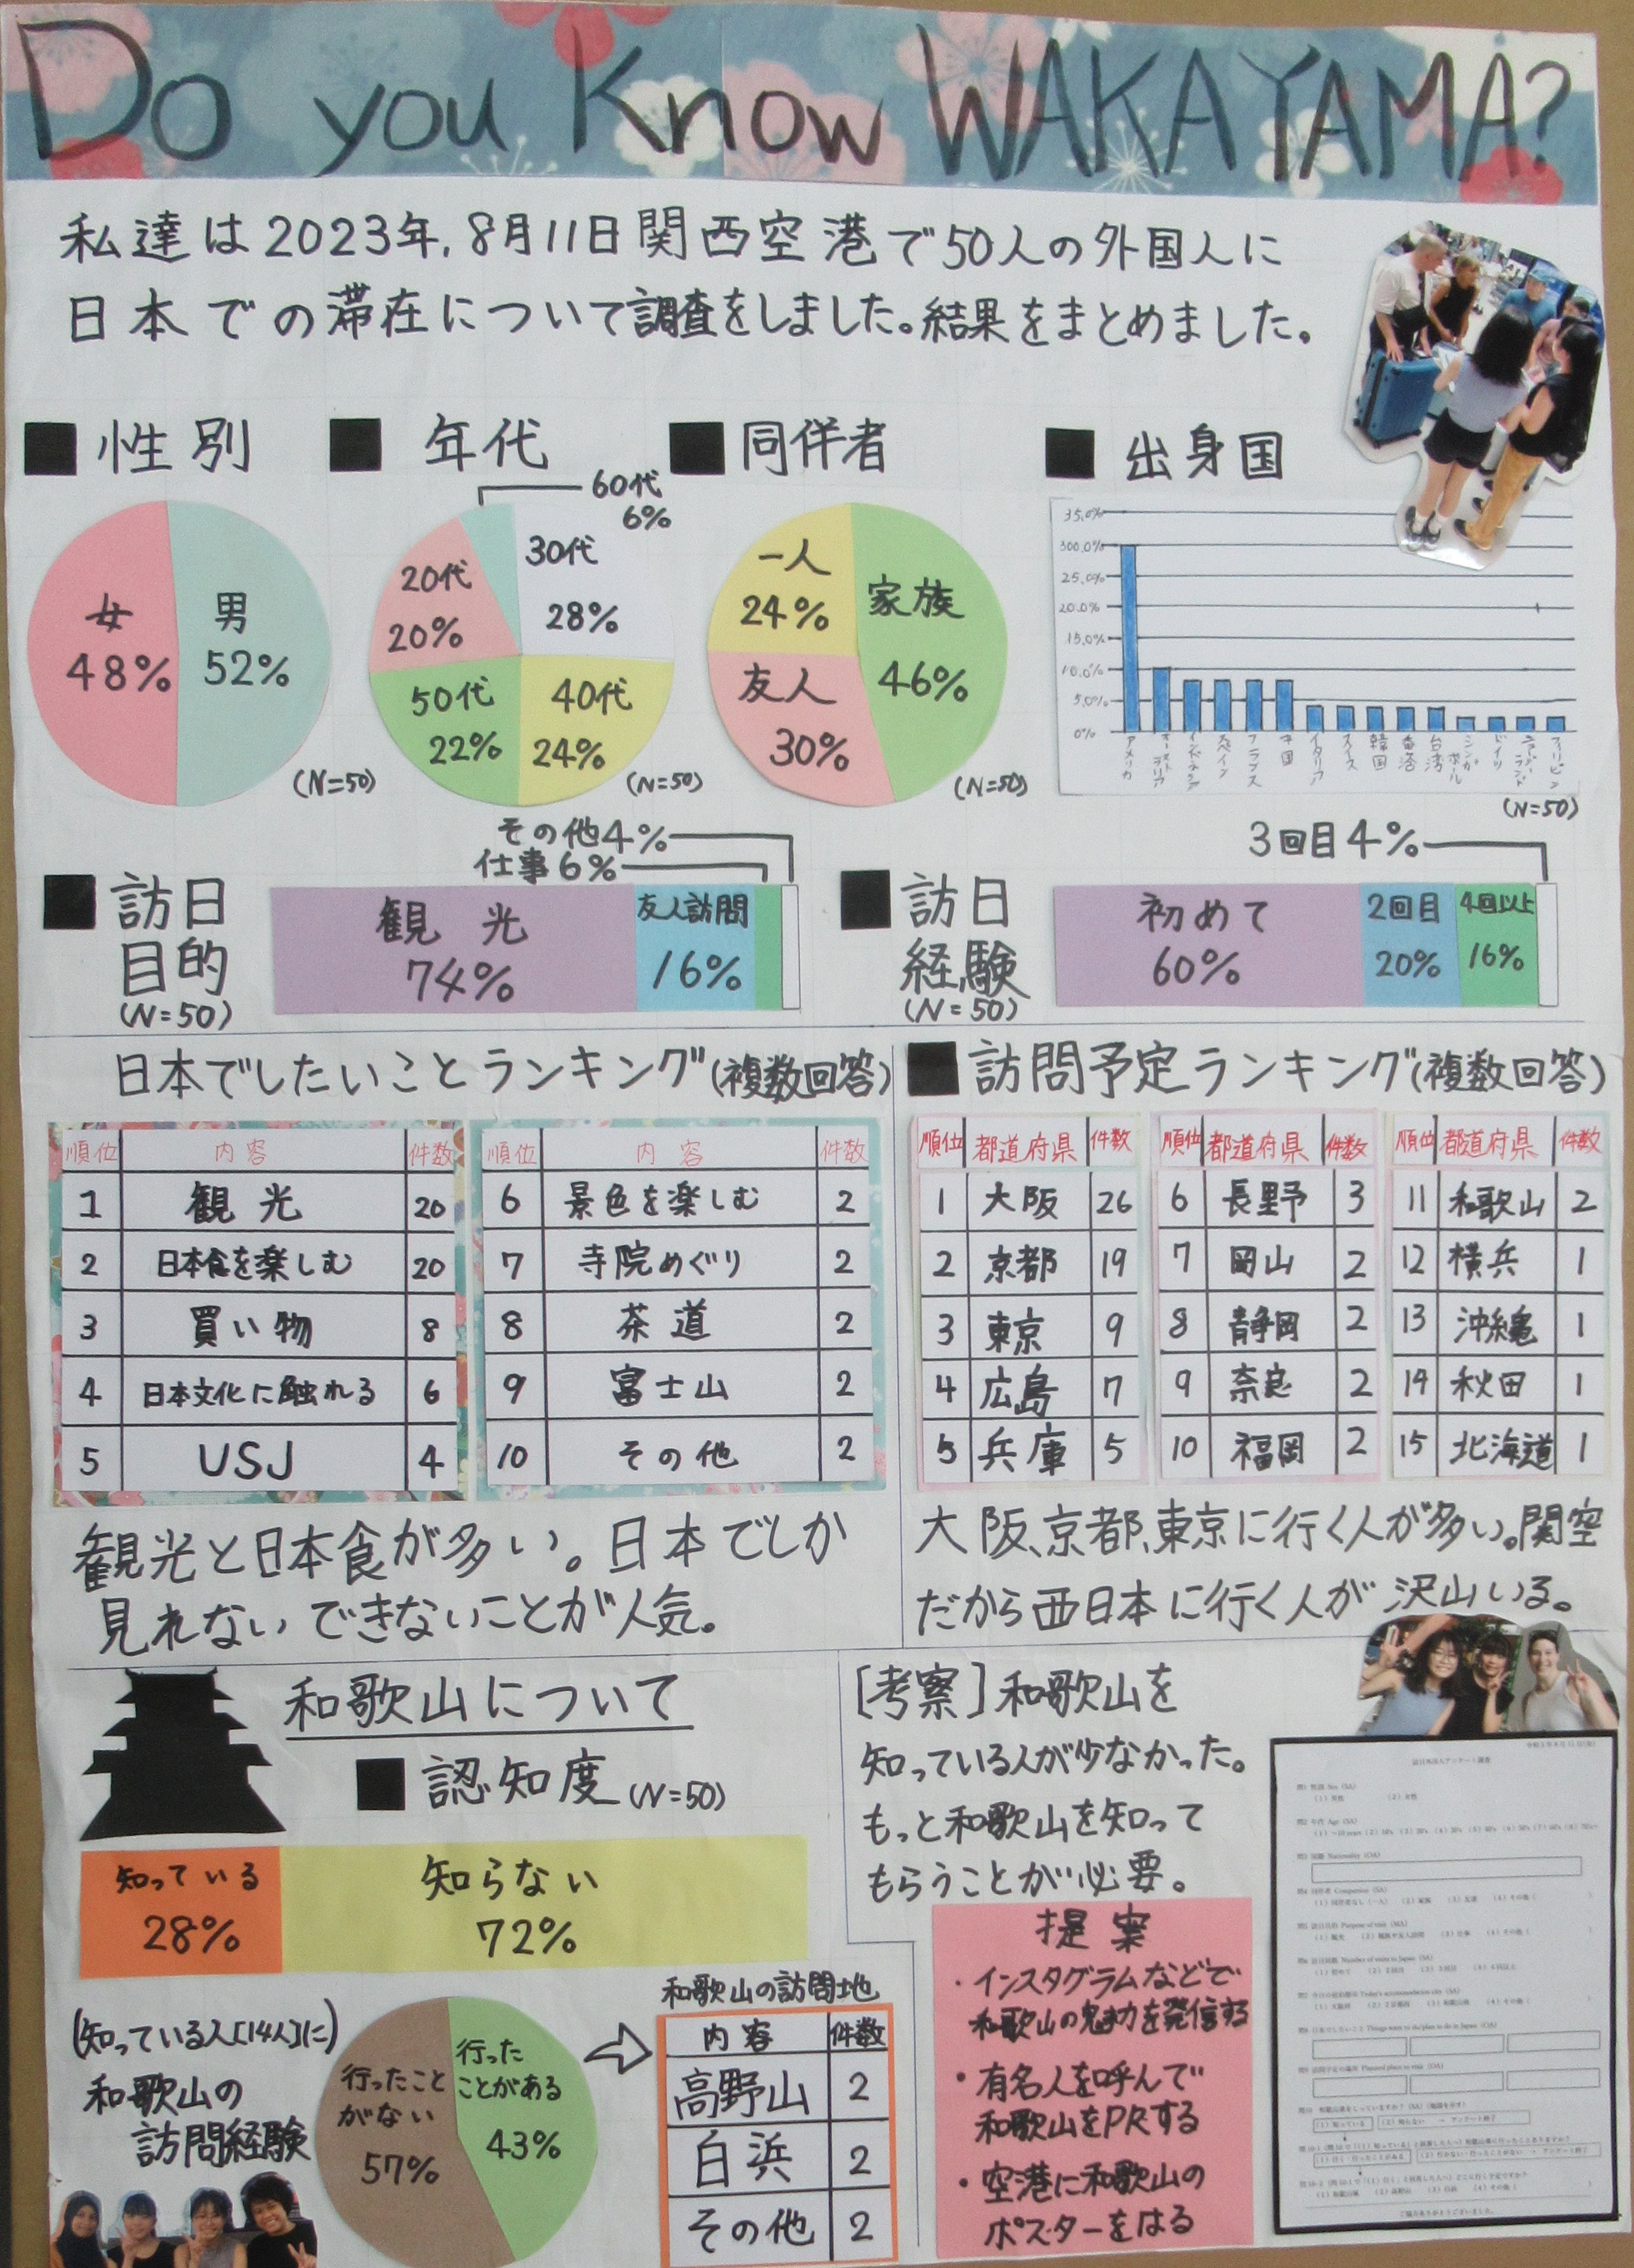 Do you Know WAKAYAMA?
私達は2023年,8月11日関西空港で50人の外国人に
日本での滞在について調査をしました。結果をまとめました。
■ 性別
女 48%
男 52%
(N=50)
■ 年代
60代 6%
30代 28%
20代 20%
50代 22%
40代 24%
(N=50)
■ 同伴者
一人 24%
家族 46%
友人 30%
(N=50)
■ 出身国
35.0%
300.0%
25.0%
20.0%
15.0%
10.0%
5.0%
0%
アメリカ
オーストラリア
インドネシア
スペイン
フランス
中国
イタリア
スイス
韓国
香港
台湾
シンガポール
ドイツ
ニュージーランド
フィリピン
(N=50)
■ 訪日目的 (N=50)
その他4%
仕事6%
観光 74%
友人訪問 16%
■ 訪日経験 (N=50)
3回目4%
初めて 60%
2回目 20%
4回以上 16%
日本でしたいことランキング(複数回答)
順位 内容 件数
1 観光 20
2 日本食を楽しむ 20
3 買い物 8
4 日本文化に触れる 6
5 USJ 4
順位 内容 件数
6 景色を楽しむ 2
7 寺院めぐり 2
8 茶道 2
9 富士山 2
10 その他 2
観光と日本食が多い。日本でしか
見れないできないことが人気。
■ 訪問予定ランキング(複数回答)
順位 都道府県 件数
1 大阪 26
2 京都 19
3 東京 9
4 広島 7
5 兵庫 5
順位 都道府県 件数
6 長野 3
7 岡山 2
8 静岡 2
9 奈良 2
10 福岡 2
順位 都道府県 件数
11 和歌山 2
12 横兵 1
13 沖縄 1
14 秋田 1
15 北海道 1
大阪、京都、東京に行く人が多い。関空
だから西日本に行く人が沢山いる。
和歌山について
■ 認知度(N=50)
知っている 28%
知らない 72%
(知っている人[14人]に)
和歌山の
訪問経験
行ったことがない 57%
行ったことがある 43%
和歌山の訪問地
内容 件数
高野山 2
白浜 2
その他 2
[考察]和歌山を
知っている人が少なかった。
もっと和歌山を知って
もらうことが必要。
提案
・インスタグラムなどで
和歌山の魅力を発信する
・有名人を呼んで
和歌山をPRする
・空港に和歌山の
ポスターをはる